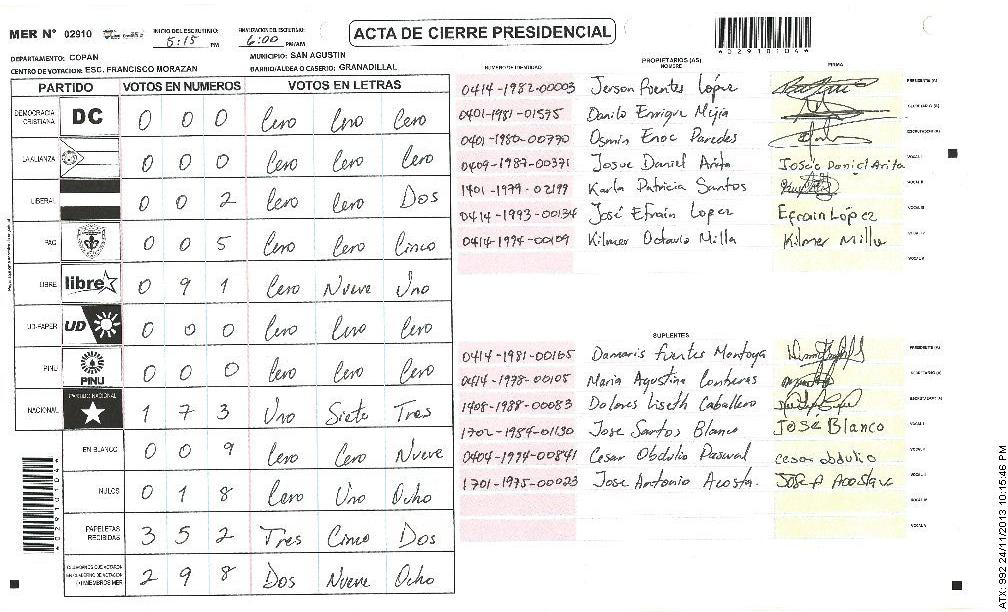 MER N° 02910
INICIO DEL ESCRUTINIO: 5:15 PM
FINALIZACION DEL ESCRUTINIO: 6:00 PM/AM
ACTA DE CIERRE PRESIDENCIAL
DEPARTAMENTO: COPAN
MUNICIPIO: SAN AGUSTIN
CENTRO DE VOTACION: ESC. FRANCISCO MORAZAN
BARRIO/ALDEA O CASERIO: GRANADILLAL
PARTIDO VOTOS EN NUMEROS VOTOS EN LETRAS
DEMOCRACIA CRISTIANA DC 0 0 0 Cero Cero Cero
LA ALIANZA 0 0 0 Cero Cero Cero
LIBERAL 0 0 2 Cero Cero Dos
PAC 0 0 5 Cero Cero Cinco
LIBRE libre 0 9 1 Cero Nueve Uno
UD-FAPER UD 0 0 0 Cero Cero Cero
PINU PINU 0 0 0 Cero Cero Cero
NACIONAL PARTIDO NACIONAL 1 7 3 Uno Siete Tres
EN BLANCO 0 0 9 Cero Cero Nueve
NULOS 0 1 8 Cero Uno Ocho
PAPELETAS RECIBIDAS 3 5 2 Tres Cinco Dos
CIUDADANOS QUE VOTARON EN CUADERNO DE VOTACION (+) MIEMBROS MER 2 9 8 Dos Nueve Ocho
PROPIETARIOS (AS)
NUMERO DE IDENTIDAD NOMBRE FIRMA
0414-1982-00003 Jerson Fuentes López PRESIDENTE (A)
0401-1981-01595 Danilo Enrique Mejia SECRETARIO (A)
0401-1980-00770 Osmin Enoc Paredes ESCRUTADOR (A)
0409-1987-00371 Josue Daniel Arita Josué Daniel Arita VOCAL I
1401-1979-02199 Karla Patricia Santos VOCAL II
0414-1993-00134 José Efraín Lopez Efraín López VOCAL III
0414-1994-00109 Kilmer Octavio Milla Kilmer Milla VOCAL IV
VOCAL V
SUPLENTES
0414-1981-00165 Damaris Fuentes Montoya PRESIDENTE (A)
0414-1978-00105 Maria Agustina Contreras SECRETARIO (A)
1408-1988-00083 Dolores Liseth Caballero ESCRUTADOR (A)
1702-1984-01130 Jose Santos Blanco JOSE Blanco VOCAL I
0404-1994-00841 Cesar Obdulio Pascual cesar obdulio VOCAL II
1701-1975-00023 Jose Antonio Acosta. VOCAL III
VOCAL IV
VOCAL V
ATX: 992 24/11/2013 10:15:46 PM